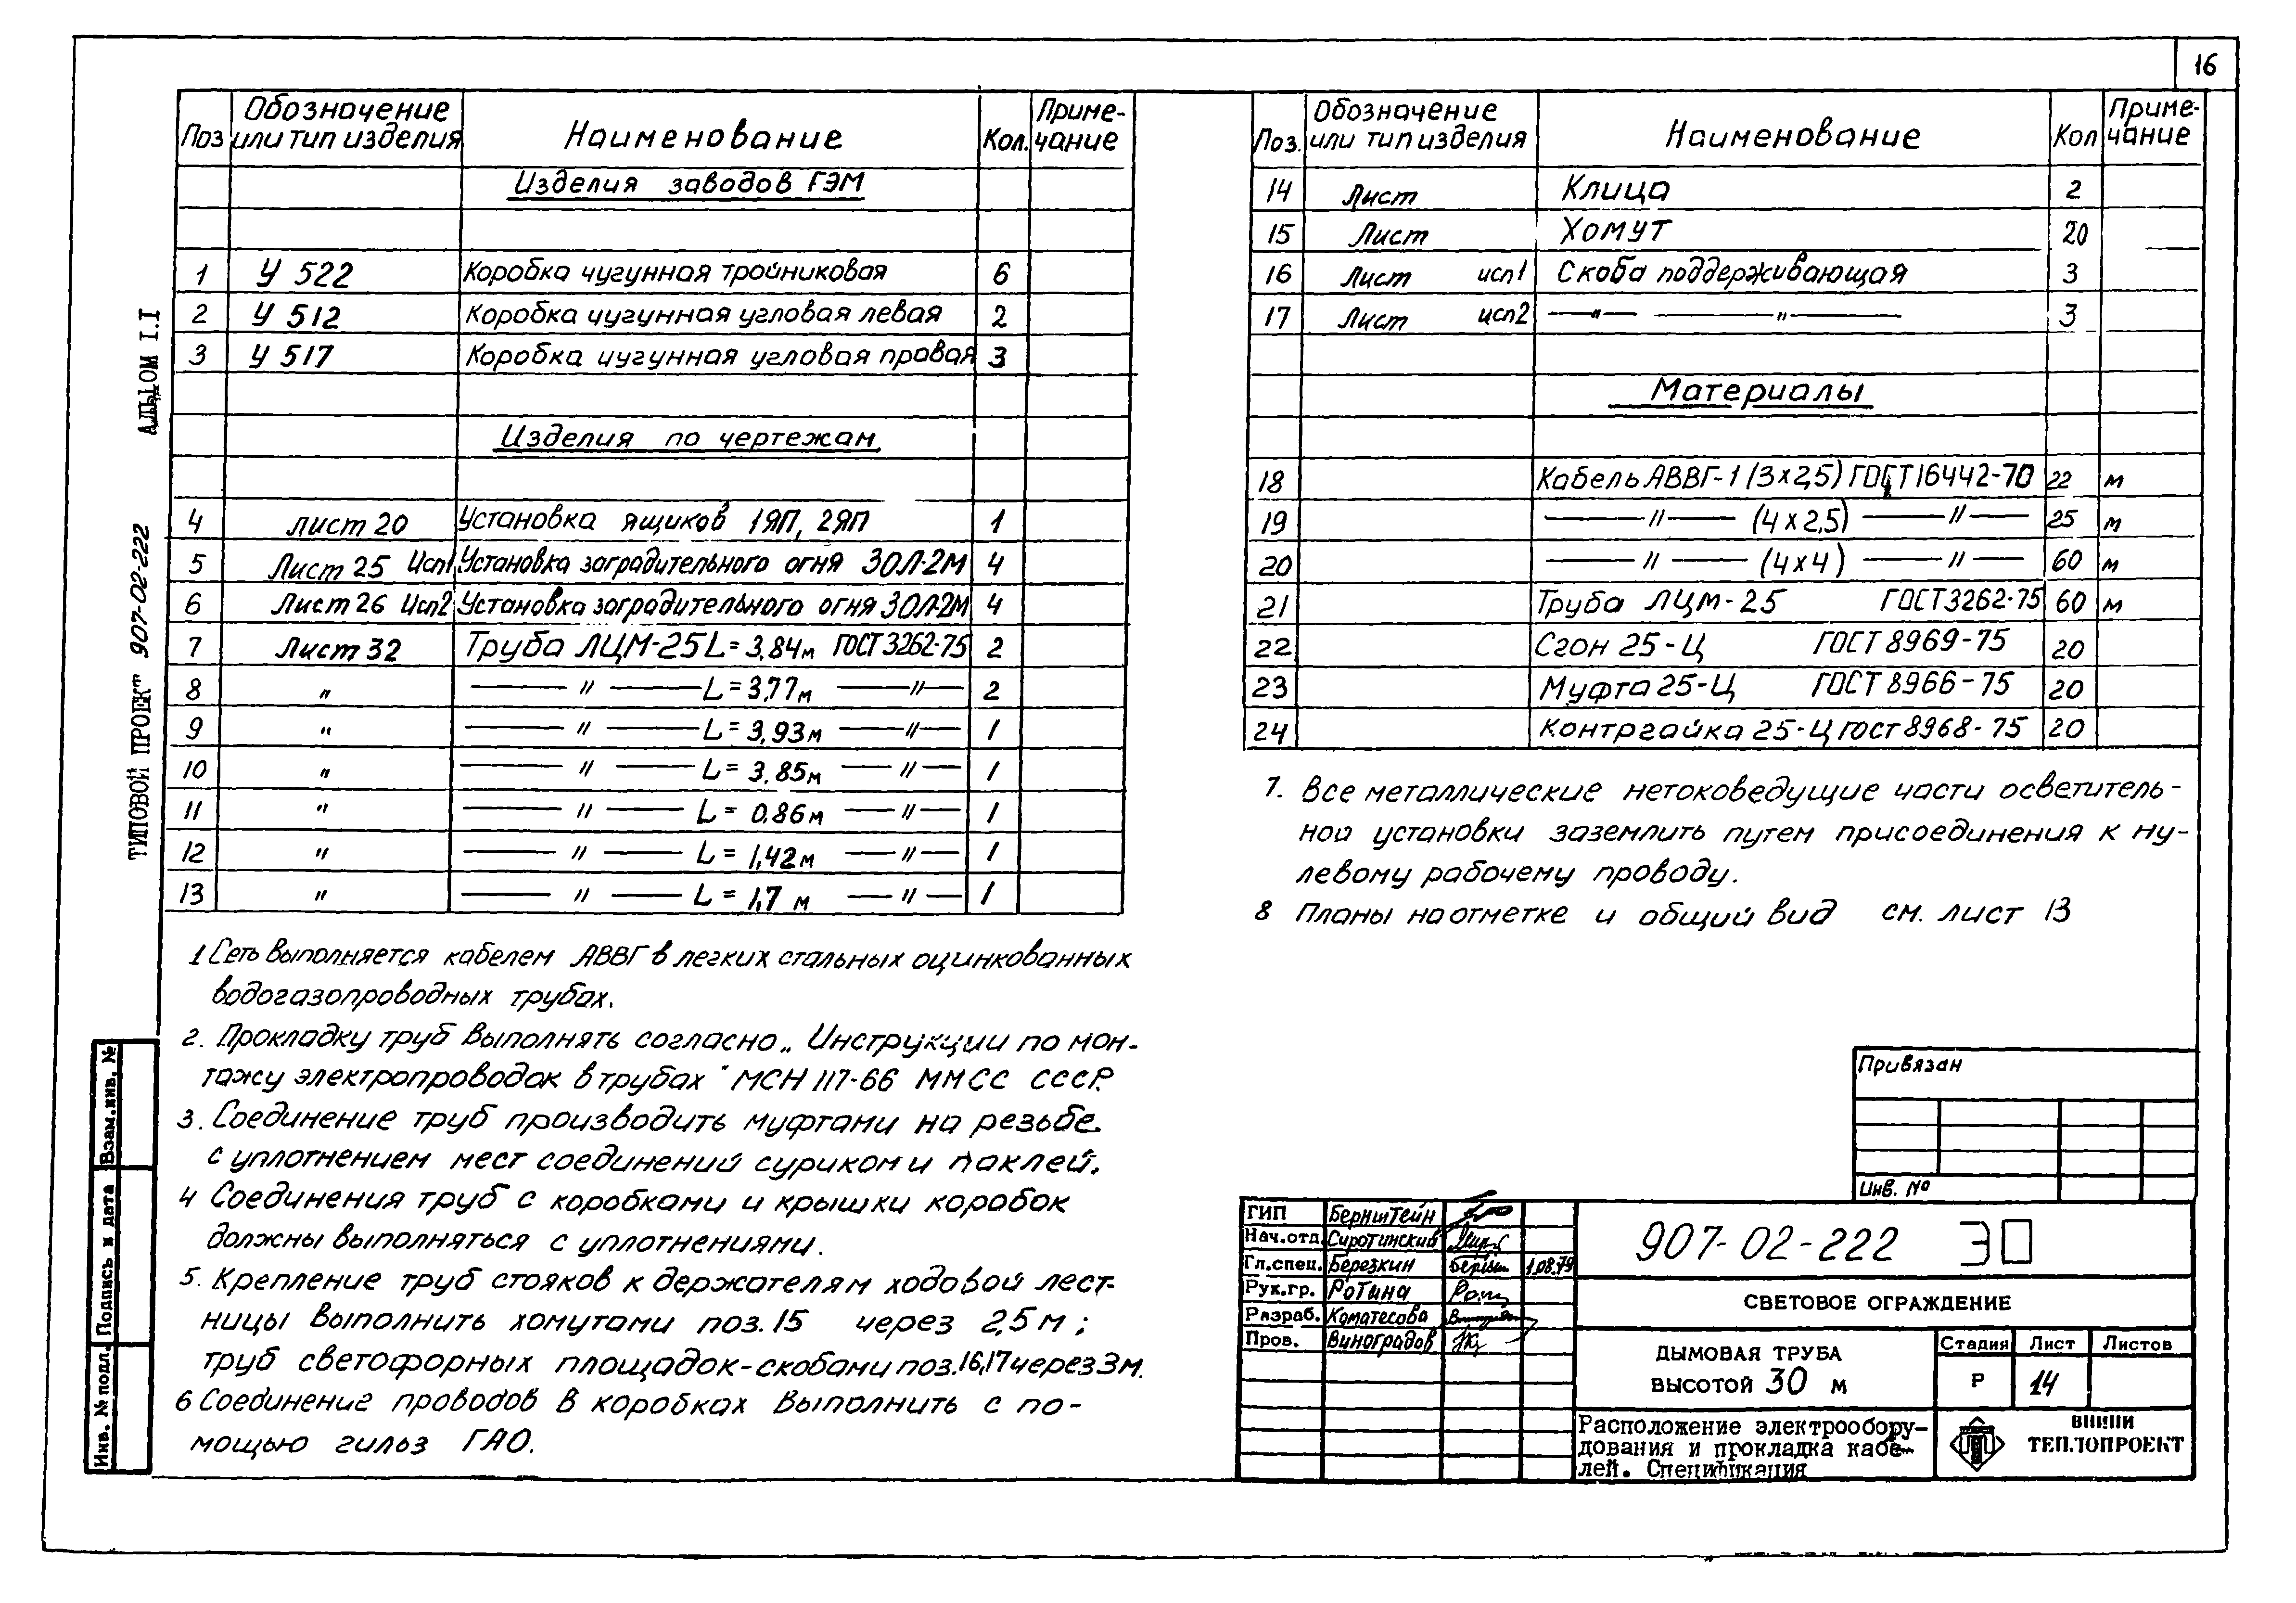 16
Поз Обозначение или тип изделия Наименование Кол. Примечание
Изделия заводов ГЭМ
1 У 522 Коробка чугунная тройниковая 6
2 У 512 Коробка чугунная угловая левая 2
3 У 517 Коробка чугунная угловая правая 3
Изделия по чертежам
4 лист 20 Установка ящиков 1ЯП, 2ЯП 1
5 Лист 25 Исп1 Установка заградительного огня ЗОЛ-2М 4
6 Лист 26 Исп2 Установка заградительного огня ЗОЛ-2М 4
7 Лист 32 Труба ЛЦМ-25 L=3,84м ГОСТ 3262-75 2
8 " — " — L=3,77м — " — 2
9 " — " — L=3,93м — " — 1
10 " — " — L=3,85м — " — 1
11 " — " — L=0,86м — " — 1
12 " — " — L=1,42м — " — 1
13 " — " — L=1,7 м — " — 1
1 Сеть выполняется кабелем АВВГ в легких стальных оцинкованных
водогазопроводных трубах.
2. Прокладку труб выполнять согласно „Инструкции по мон-
тажу электропроводок в трубах" МСН 117-66 ММСС СССР.
3. Соединение труб производить муфтами на резьбе
с уплотнением мест соединений суриком и паклей.
4 Соединения труб с коробками и крышки коробок
должны выполняться с уплотнениями.
5. Крепление труб стояков к держателям ходовой лест-
ницы выполнить хомутами поз.15 через 2,5м;
труб светофорных площадок-скобами поз.16,17 через 3м.
6 Соединениг проводов в коробках выполнить с по-
мощью гильз ГАО.
Поз. Обозначение или тип изделия Наименование Кол Примечание
14 Лист Клица 2
15 Лист Хомут 20
16 Лист исп1 Скоба поддерживающая 3
17 Лист исп2 — " — — " — 3
Материалы
18 Кабель АВВГ-1 (3х2,5) ГОСТ 16442-70 22 м
19 — " — (4х2,5) — " — 25 м
20 — " — (4х4) — " — 60 м
21 Труба ЛЦМ-25 ГОСТ 3262-75 60 м
22 Сгон 25-Ц ГОСТ 8969-75 20
23 Муфта 25-Ц ГОСТ 8966-75 20
24 Контргайка 25-Ц ГОСТ 8968-75 20
7. Все металлические нетоковедущие части осветитель-
ной установки заземлить путем присоединения к ну-
левому рабочему проводу.
8 Планы на отметке и общий вид см. лист 13
Привязан
Инв. №
ГИП Бернштейн
Нач.отд. Сиротинский
Гл.спец. Березкин 1.08.79
Рук.гр. Ротина
Разраб. Коматесова
Пров. Виноградов
907-02-222 ЭО
СВЕТОВОЕ ОГРАЖДЕНИЕ
ДЫМОВАЯ ТРУБА
ВЫСОТОЙ 30 М
Стадия Лист Листов
Р 14
Расположение электрообору-
дования и прокладка кабе-
лей. Спецификация
ВНИПИ
ТЕПЛОПРОЕКТ
ТИПОВОЙ ПРОЕКТ 907-02-222 АЛЬБОМ I.I
Инв. № подл. Подпись и дата Взам.инв. №